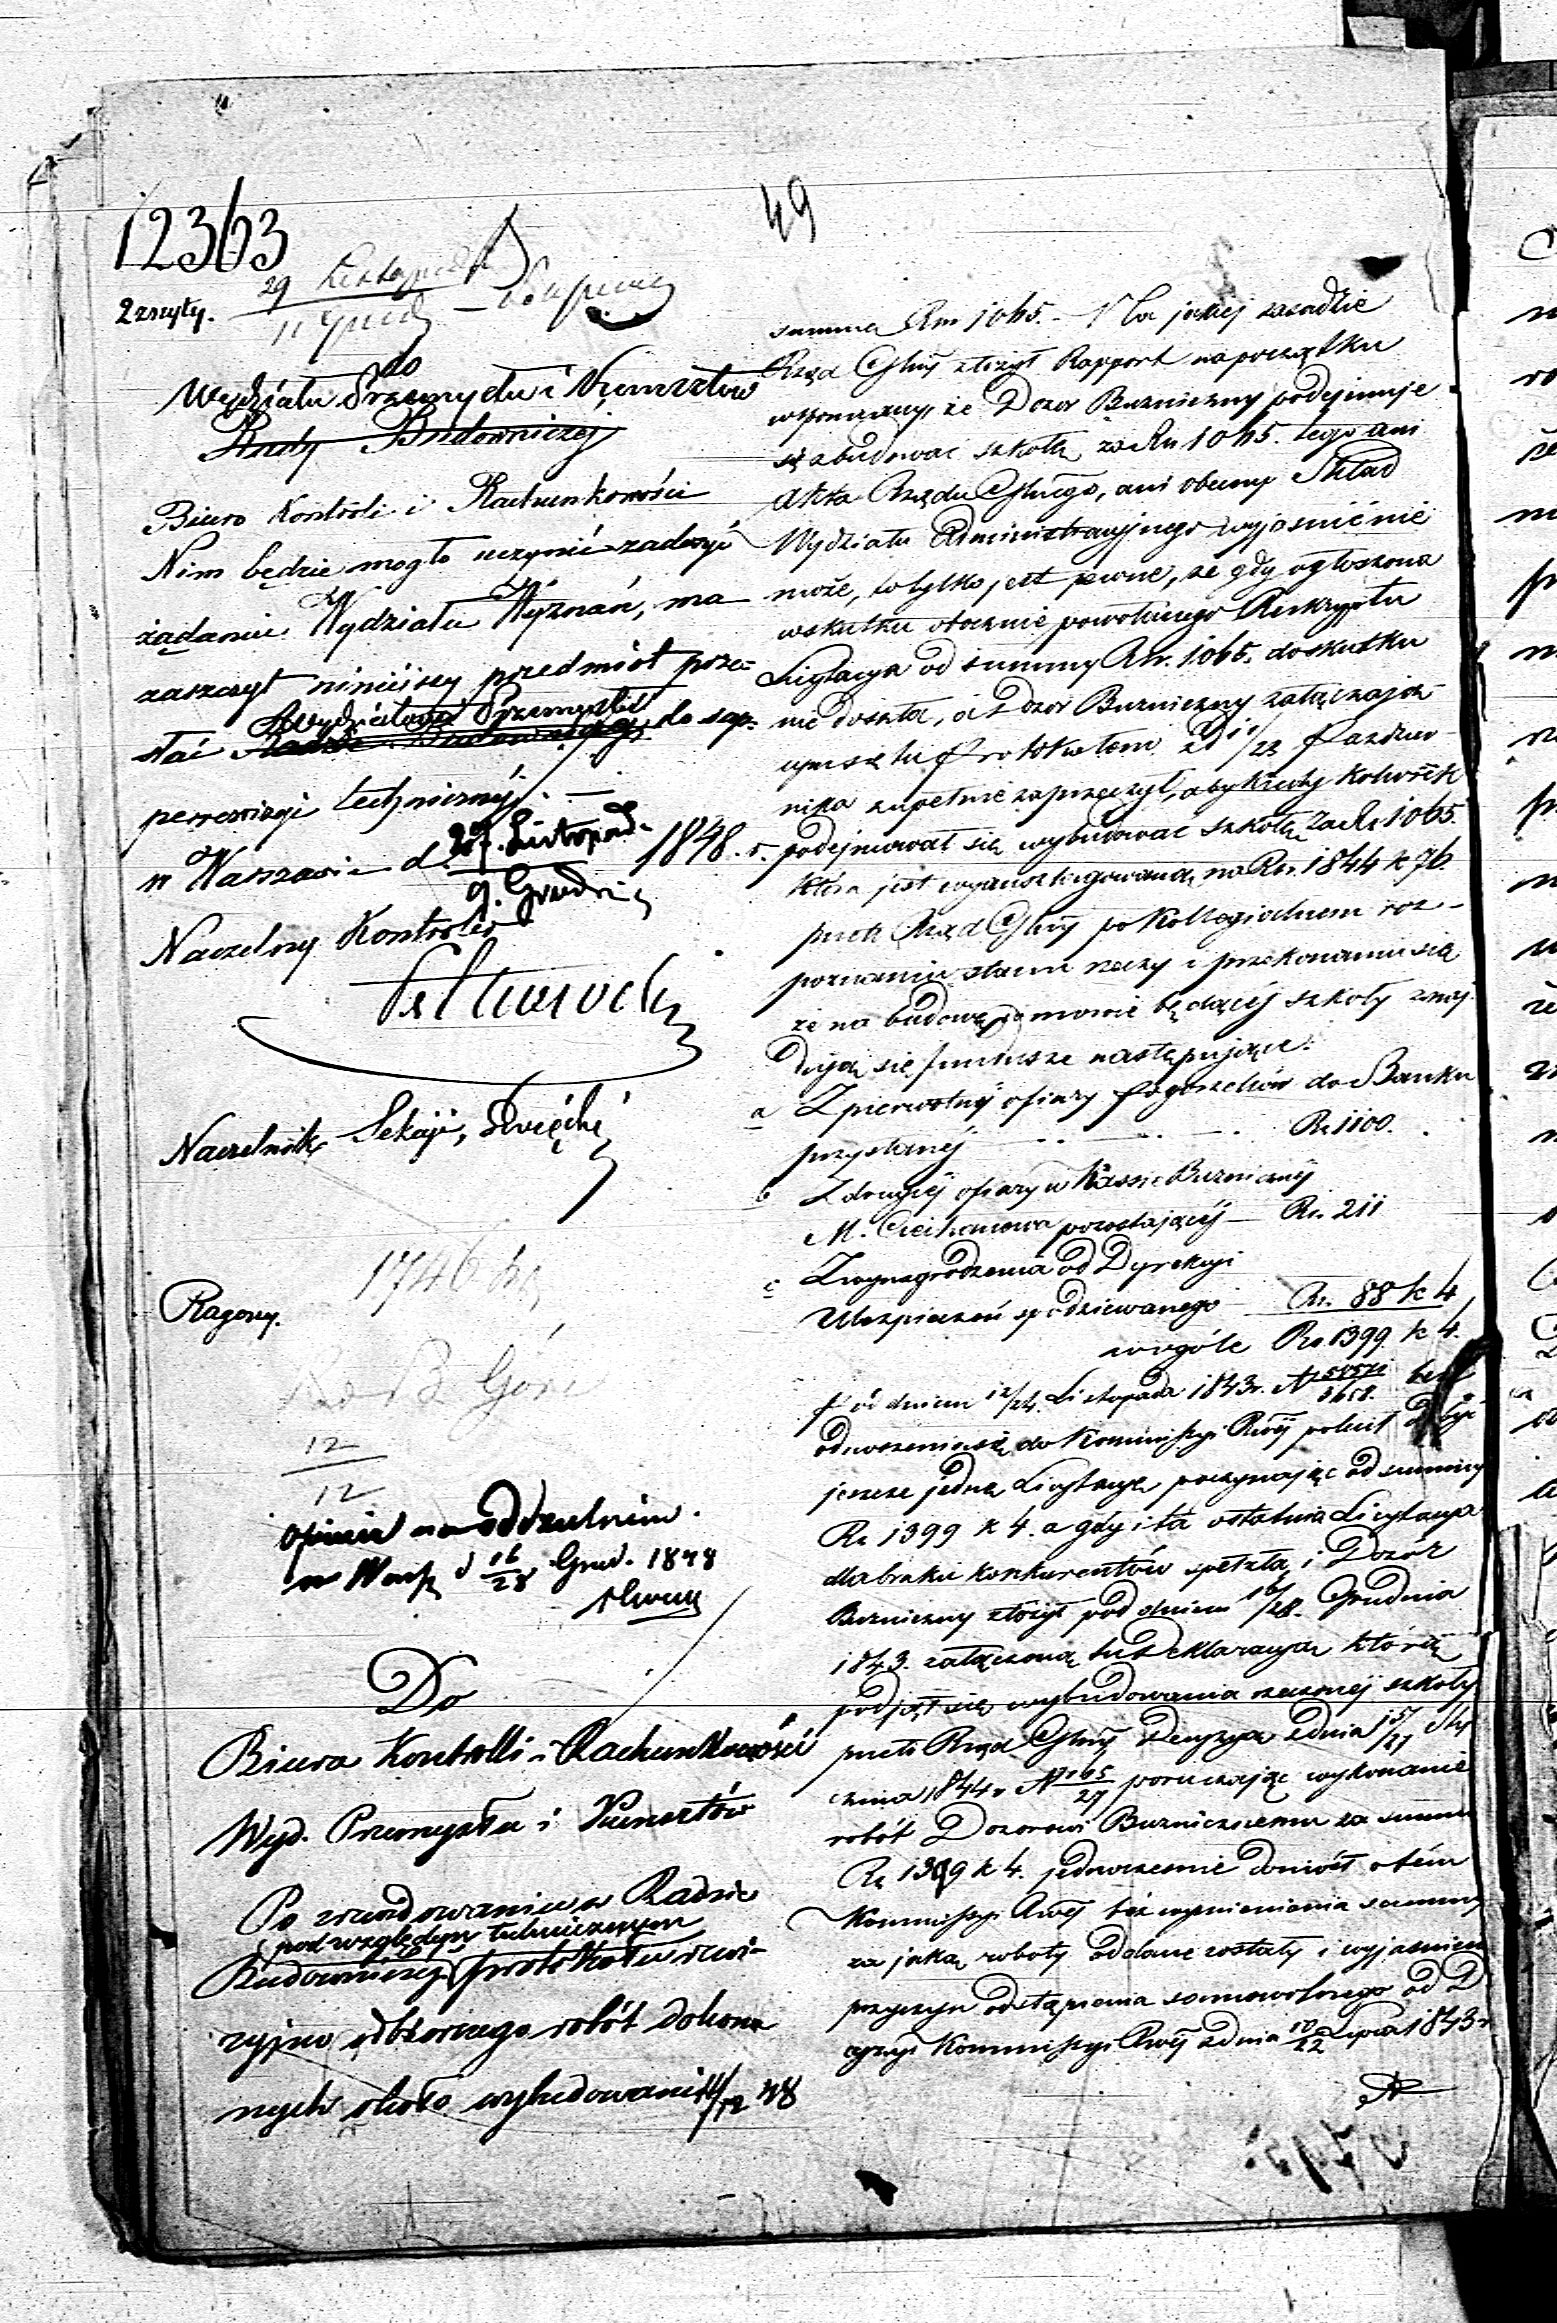 49
12363
2 zszyty.
29 Listopada
11 Grud
do
Wydziału Przemysłu i Kunsztów
Rady Budowniczej
Biuro Kontroli i Rachunkowości
Nim będzie mogło uczynić zadosyć
żądaniu Wydziału Wyznań, ma
zaszczyt niniéjszy przedmiot prze-
Wydziałowi Przemysłu
słać Radzie Budowniczéj, do sup-
perrewizyi technicznéj. —
w Warszawie d. 29. Listopad. 1848. r.
9. Grudnia
Naczelny Kontroler
Naczelnik Sekcyi, Święcki
1746
Ragowy.
12
12
opinia na oddzielnim.
w Warsz d 16/28 Grud. 1848
Do
Biura Kontrolli i Rachunkowości
Wyd. Przemysłu i Kunsztów
Po zrewidowaniu w Radzie
pod względem technicznym
Budowniczéj protokołu rewi-
zyjno odbiorczego robót dokona
nych około wybudowania
11/12 48
summa Rsr 1065. – Na jakiej zasadzie
Rząd Gbny złożył Rapport na początku
wspomniany, że Dozor Bużniczny podejmuje
się zbudować szkołę za Rs 1065. tego ani
Akta Rządu Gbnego, ani obecny Skład
Wydziału Administracyjnego wyjaśnić nie
może, to tylko jest pewne, że gdy ogłoszona
wskutku obecnie powołanego Reskryptu
Licytacya od summy Rsr. 1065. do skutku
nie doszła, a Dozor Bużniczny załączają-
cym się tu Protokułem z d 11/23 Paździer-
nika zupełnie zaprzeczył, aby kiedykolwiek
podejmował się wybudować szkołę za Rs 1065.
która jest wyanszlagowaną na Rsr. 1844 k 76.
przeto Rząd Gbny po kollegialnem roz-
poznaniu stanu rzeczy i przekonaniu się
że na budowę w mowie będącéj szkoły znaj
dują się fundusze następujące:
a Z pierwotnéj ofiary pogorzelców do Banku
przysłanéj Rs 1100.
b Z drugiéj ofiary w Kassie Bużnicznéj
M. Ciechanowa pozostającéj — Rs. 211
c Z wynagrodzenia od Dyrekcyi
Ubezpieczeń spodziewanego — Rs. 88 k 4
w ogóle Rs 1399 k 4.
pod dniem 12/24. Listopada 1843r. N bez
odnoszenia się do Kommissyi Rwéj polecił odbyć
jeszcze jedną Licytacyę, poczynając od summy
Rs 1399 k 4. a gdy i ta ostatnia Licytacya
dla braku konkurentów spełzła, i Dozór
Bużniczny złożył pod dniem 16/28. Grudnia
1843. załączoną tu Deklaracyę którą
podjął się wybudowania rzeczonéj szkoły
przeto Rząd Gbny Decyzyą z dnia 15/27 Sty
cznia 1844 r N poruczając wykonanie
robót Dozorowi Bużniczemu za summę
Rs 1399 k 4. jednocześnie doniósł o tém
Kommissyi Rwéj bez wymienienia summy
za jaką roboty oddane zostały i wyjaśnienia
przyczyn odstąpienia samowolnego od De
cyzyi Kommissyi Rwéj z dnia 10/22 Lipca 1843 r